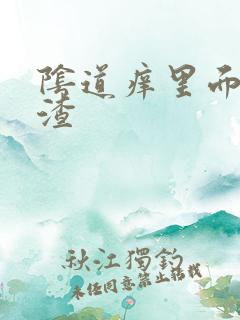 陰道痒里面
渣
秋江獨釣
未经同意禁止转载